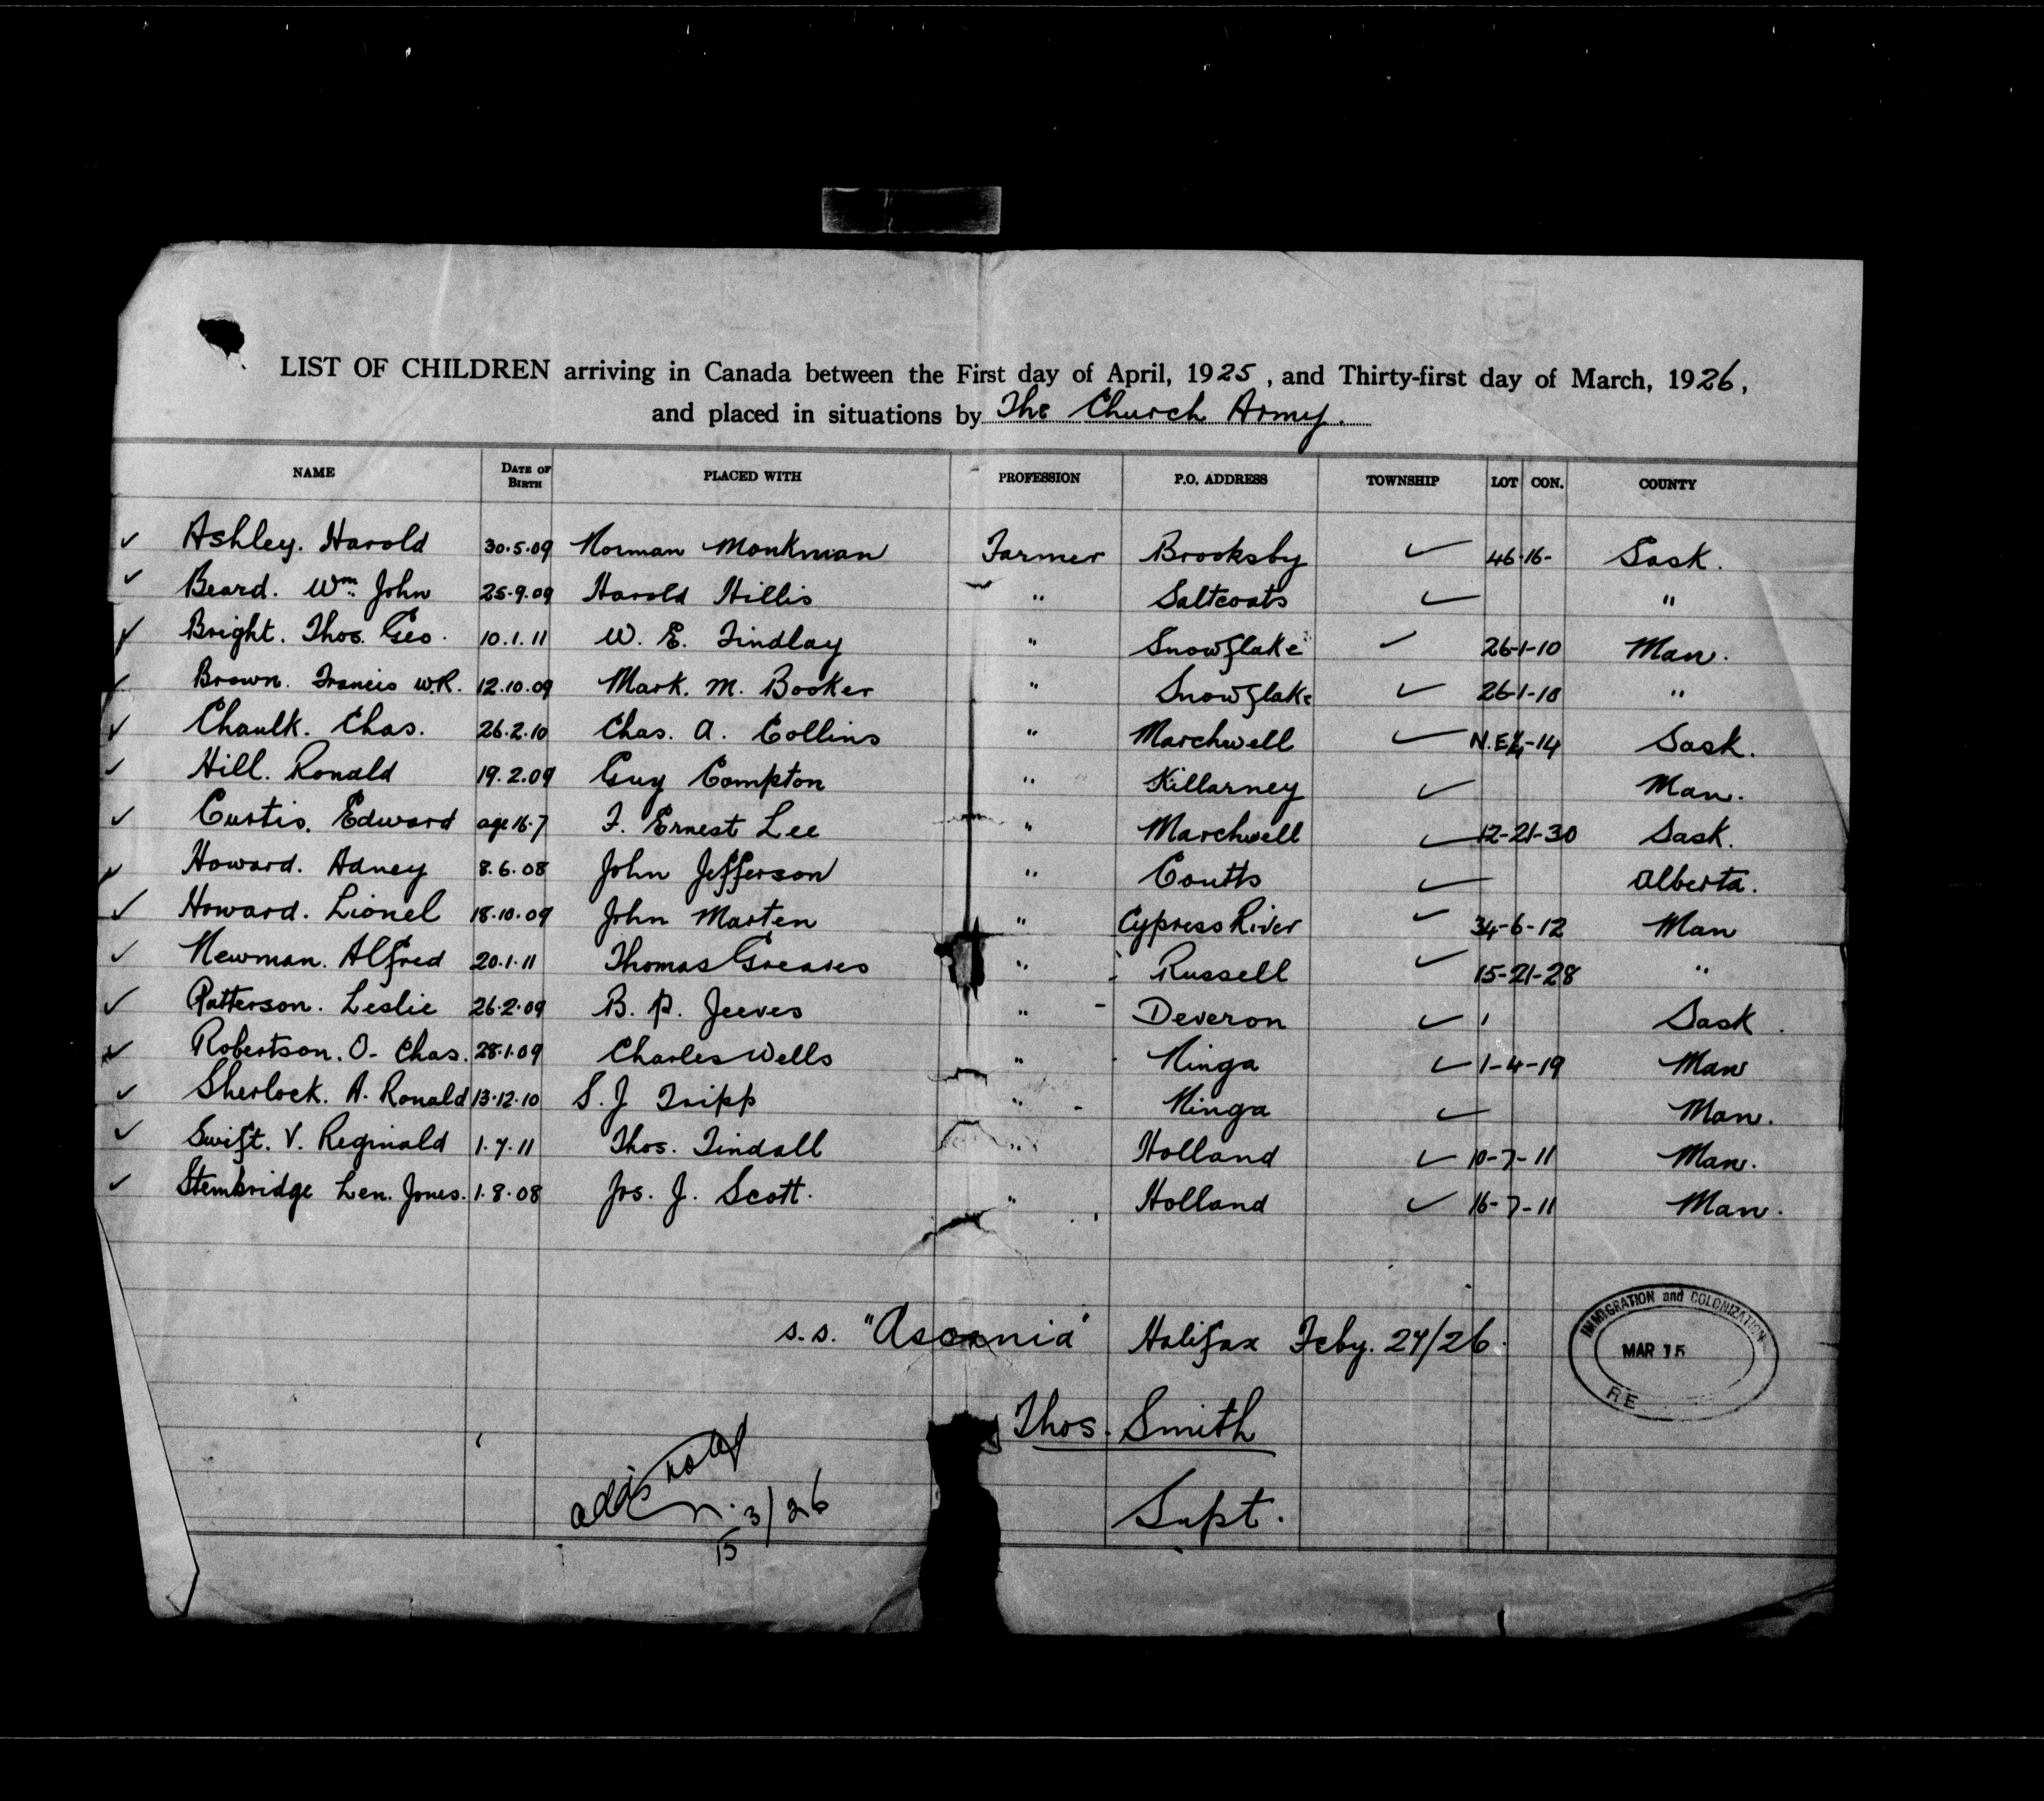 LIST OF CHILDREN arriving in Canada between the First day of April, 1925, and Thirty-first day of March, 1926,
and placed in situations by The Church Army.
NAME DATE OF BIRTH PLACED WITH PROFESSION P.O. ADDRESS TOWNSHIP LOT CON. COUNTY
✓ Ashley. Harold 30.5.09 Norman Monkman Farmer Brooksby ✓ 46-16- Sask.
✓ Beard. Wm. John 25.9.09 Harold Hillis " Saltcoats ✓ "
✓ Bright. Thos. Geo. 10.1.11 W. E. Findlay " Snowflake ✓ 26-1-10 Man.
✓ Brown. Francis W.R. 12.10.09 Mark. M. Booker " Snowflake ✓ 26-1-10 "
✓ Chaulk. Chas. 26.2.10 Chas. A. Collins " Marchwell ✓ N.E¼-14 Sask.
✓ Hill. Ronald 19.2.09 Guy Compton " Killarney ✓ Man.
✓ Curtis. Edward age 16.7 F. Ernest Lee " Marchwell ✓ 12-21-30 Sask.
✓ Howard. Adney 8.6.08 John Jefferson " Coutts ✓ Alberta.
✓ Howard. Lionel 18.10.09 John Marten " Cypress River ✓ 34-6-12 Man
✓ Newman. Alfred 20.1.11 Thomas Greaves " Russell ✓ 15-21-28 "
✓ Patterson. Leslie 26.2.09 B. P. Jeeves " Deveron ✓ Sask.
✓ Robertson. O. Chas. 28.1.09 Charles Wells " Ninga ✓ 1-4-19 Man
✓ Sherlock. A. Ronald 13.12.10 S. J. Tripp " Ninga ✓ Man.
✓ Swift. V. Reginald 1.7.11 Thos. Tindall " Holland ✓ 10-7-11 Man.
✓ Stembridge Len. Jones. 1.8.08 Jos. J. Scott. " Holland ✓ 16-7-11 Man.
s.s. "Ascania" Halifax Feby. 27/26.
IMMIGRATION and COLONIZATION
MAR 15
RE
Thos. Smith
Supt.
3/26
15